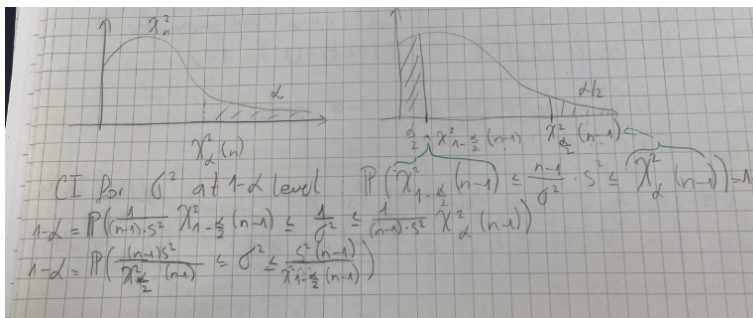 χ²ₙ
α
α/2
χ²_α (n)
α/2 χ²_{1-α/2} (n-1) χ²_{α/2} (n-1)
CI for σ² at 1-α level : ℙ(χ²_{1-α/2} (n-1) ≤ n-1/σ² · s² ≤ χ²_α (n-1)) = 1
1-α = ℙ(1/(n-1)·s² χ²_{1-α/2} (n-1) ≤ 1/σ² ≤ 1/(n-1)·s² χ²_α (n-1))
1-α = ℙ((n-1)s²/χ²_{α/2} (n-1) ≤ σ² ≤ s²(n-1)/χ²_{1-α/2} (n-1))